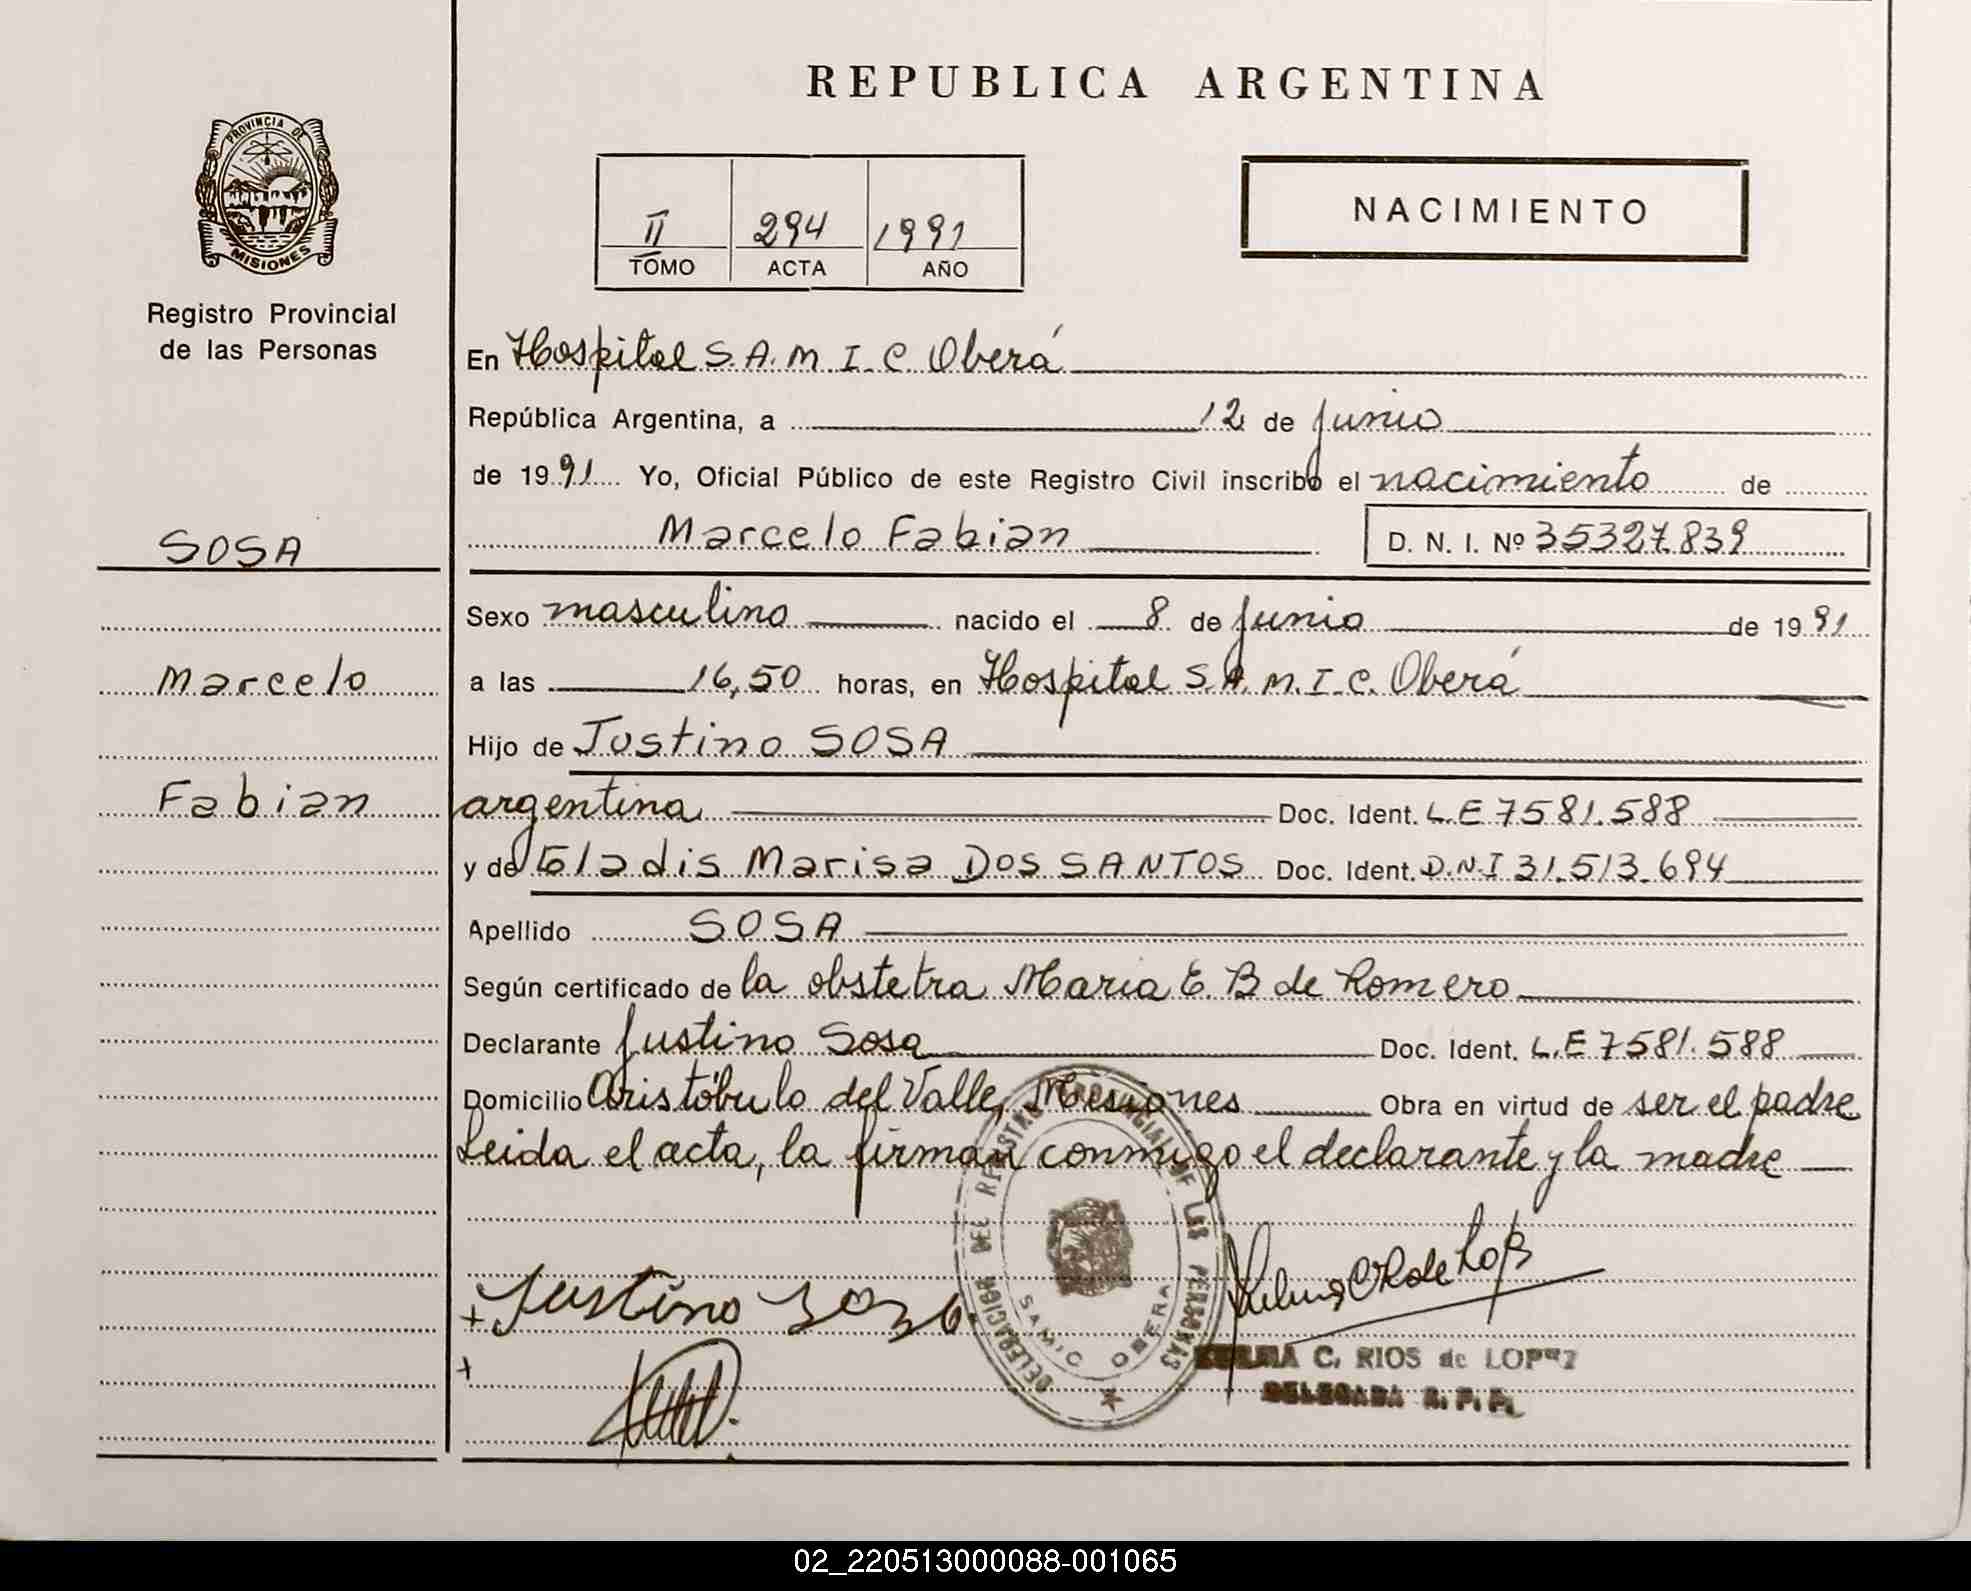 REPUBLICA ARGENTINA
PROVINCIA DE
MISIONES
Registro Provincial
de las Personas
II 294 1991
TOMO ACTA AÑO
NACIMIENTO
SOSA
Marcelo
Fabian
En Hospital S.A.M.I.C. Oberá
República Argentina, a 12 de junio
de 1991 Yo, Oficial Público de este Registro Civil inscribo el nacimiento de
Marcelo Fabian D. N. I. Nº 35327.839
Sexo masculino nacido el 8 de junio de 1991
a las 16,50 horas, en Hospital S.A.M.I.C. Oberá
Hijo de Justino SOSA
argentina Doc. Ident. L.E 7581.588
y de Gladis Marisa DOS SANTOS Doc. Ident. D.N.I 31.513.694
Apellido SOSA
Según certificado de la obstetra Maria E. B de Romero
Declarante Justino Sosa Doc. Ident. L.E 7581.588
Domicilio Aristóbulo del Valle, Misiones Obra en virtud de ser el padre
Leida el acta, la firman conmigo el declarante y la madre
DELEGACION DEL REGISTRO PROVINCIAL DE LAS PERSONAS
SAMIC OBERA
+ Justino Soza
+
C. RIOS de LOPEZ
DELEGADA R. P. P.
02_220513000088-001065